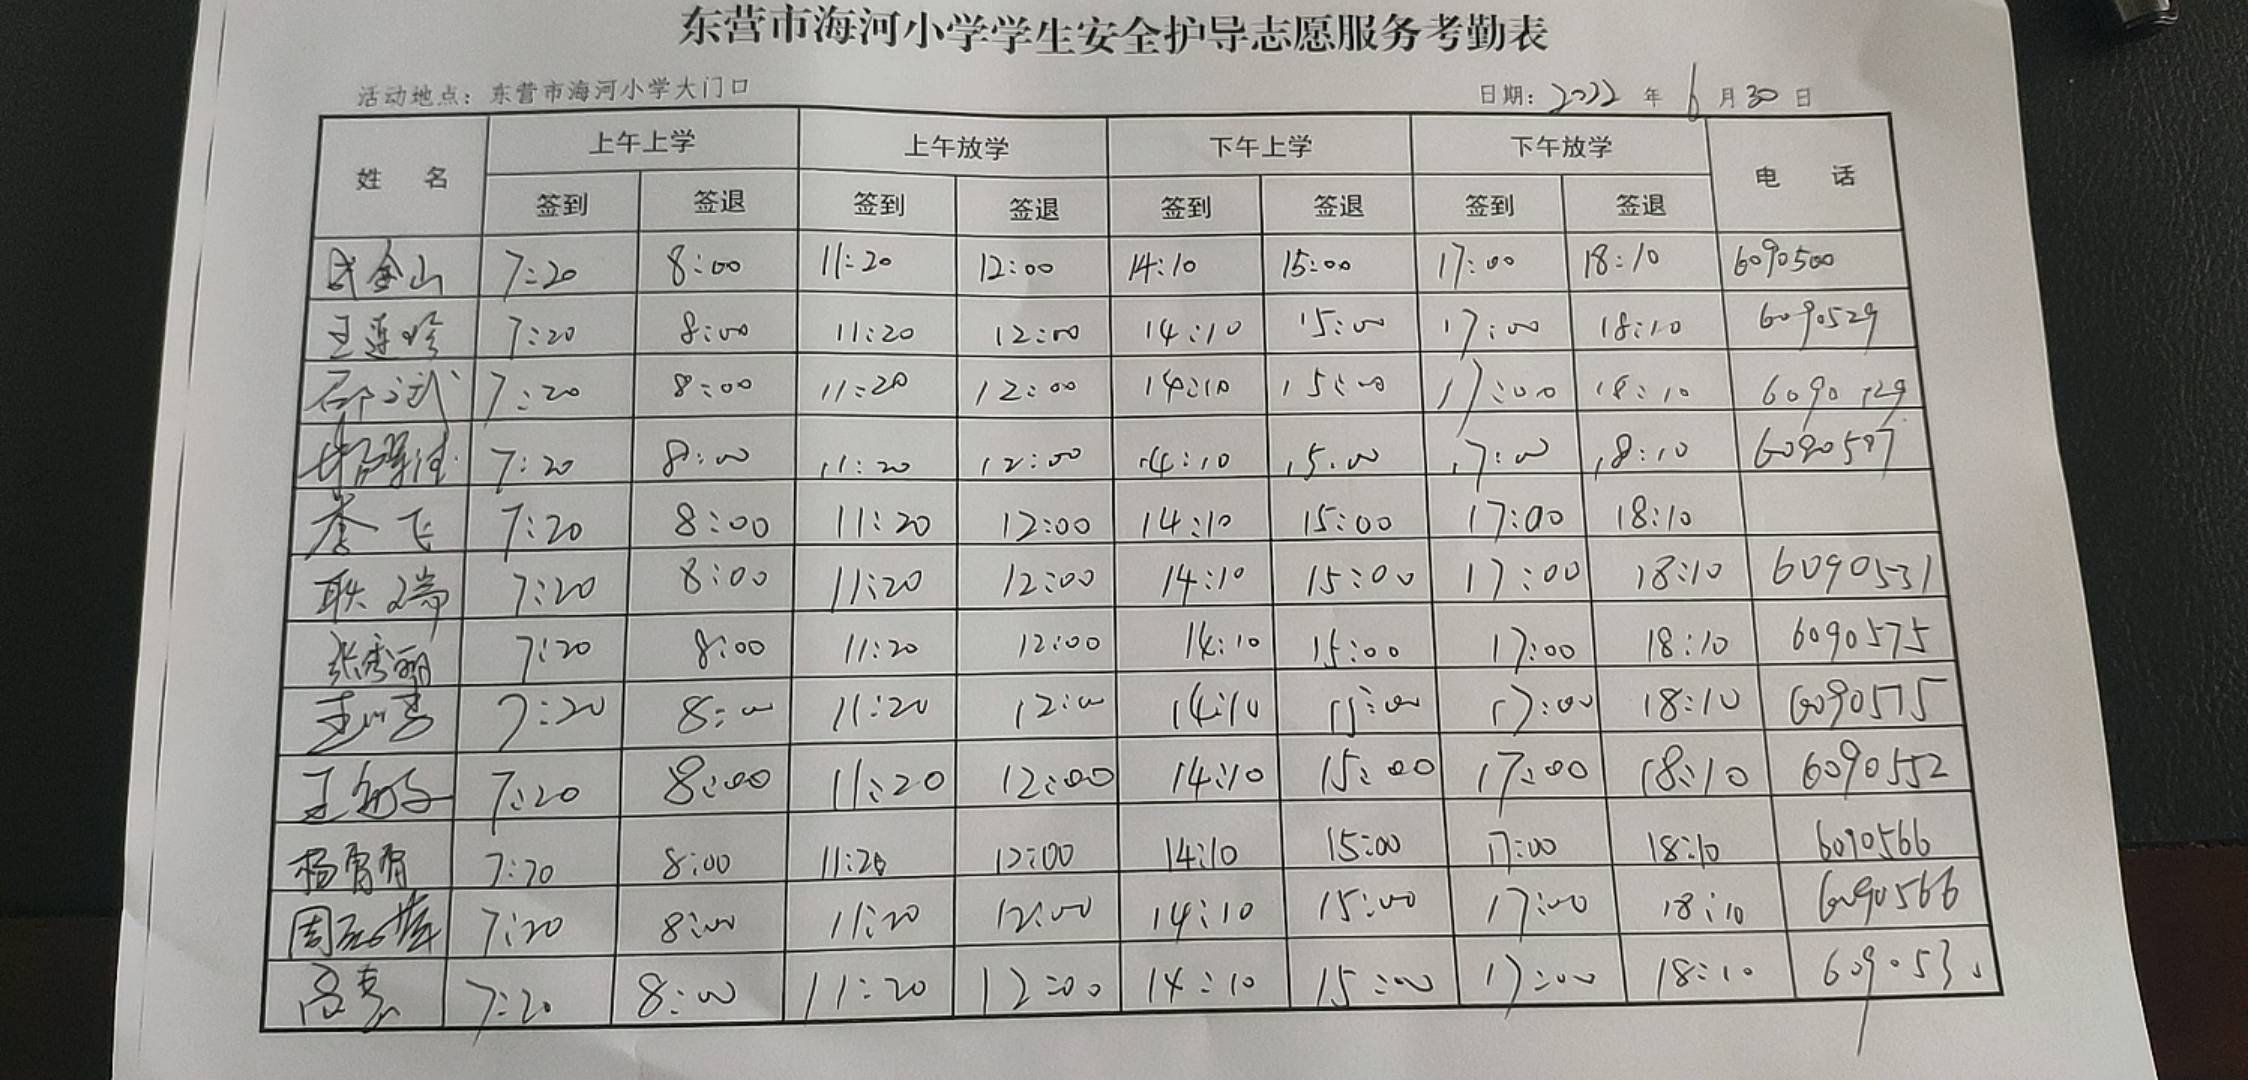 东营市海河小学学生安全护导志愿服务考勤表
活动地点：东营市海河小学大门口 日期：2022 年 6 月 30 日
姓 名 上午上学 上午放学 下午上学 下午放学 电 话
签到 签退 签到 签退 签到 签退 签到 签退
金山 7:20 8:00 11:20 12:00 14:10 15:00 17:00 18:10 6090500
王连 7:20 8:00 11:20 12:00 14:10 15:00 17:00 18:10 6090529
7:20 8:00 11:20 12:00 14:10 15:00 17:00 18:10
7:20 8:00 11:20 12:00 14:10 15:00 17:00 18:10
李飞 7:20 8:00 11:20 12:00 14:10 15:00 17:00 18:10
耿瑞 7:20 8:00 11:20 12:00 14:10 15:00 17:00 18:10 6090531
张秀丽 7:20 8:00 11:20 12:00 14:10 15:00 17:00 18:10 6090575
7:20 8:00 11:20 12:00 14:10 15:00 17:00 18:10 6090575
王 7:20 8:00 11:20 12:00 14:10 15:00 17:00 18:10 6090552
杨 7:20 8:00 11:20 12:00 14:10 15:00 17:00 18:10 6090566
周 7:20 8:00 11:20 12:00 14:10 15:00 17:00 18:10 6090566
7:20 8:00 11:20 12:00 14:10 15:00 17:00 18:10